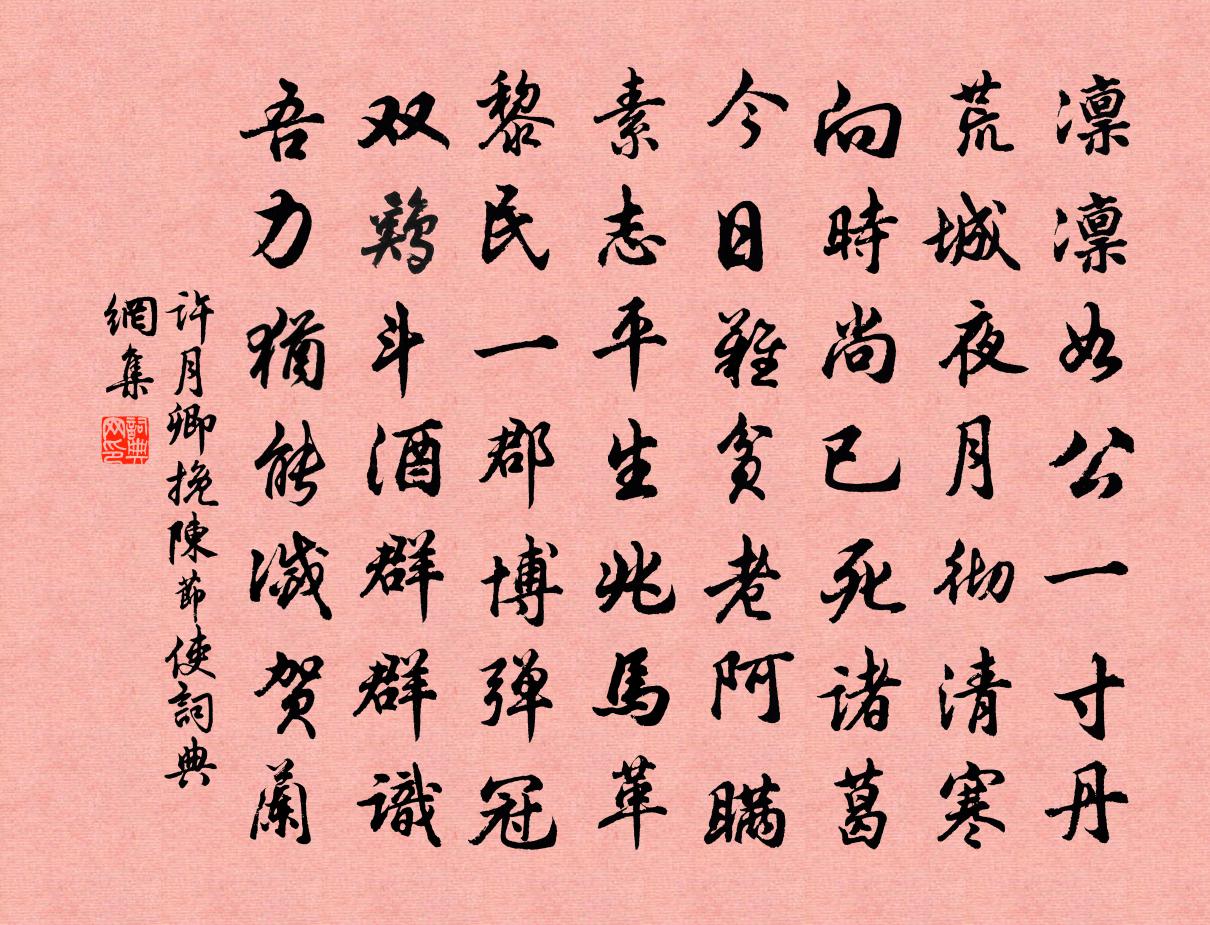 凛凛如公一寸丹
荒城夜月彻清寒
向時尚已死诸葛
今日難贫老阿瞒
素志平生兆馬革
黎民一郡博弹冠
双鶏斗酒群群識
吾力犹能滅贺蘭
許月卿挽陳節使詞典
網集
詞典网印